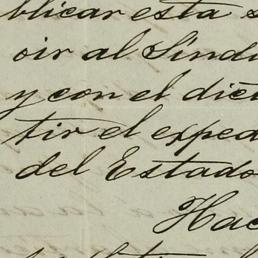 blicar esta
oir al Sindi
y con el dict
tir el exped
del Estado
Hac